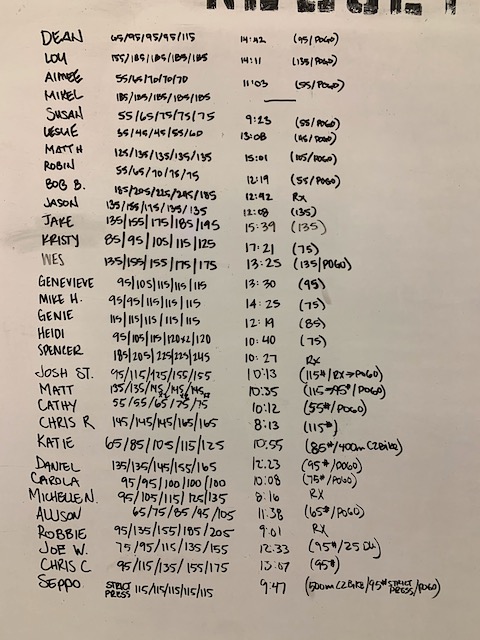 DEAN 65/95/95/95/115 14:42 (95/POGO)
LOU 155/185/185/185/185 14:11 (135/POGO)
AIMEE 55/65/70/70/70 11:03 (55/POGO)
MIKEL 185/185/185/185/185
SUSAN 55/65/75/75/75 9:23 (55/POGO)
LESLIE 35/45/45/55/60 13:08 (45/POGO)
MATT H 125/135/135/135/135 15:01 (105/POGO)
ROBIN 55/65/70/75/75 12:19 (55/POGO)
BOB B. 185/205/225/245/185 12:42 RX
JASON 135/155/175/135/135 12:08 (135)
JAKE 135|155|175|185|195 15:39 (135)
KRISTY 85|95|105|115|125 17:21 (75)
WES 135/155|155|175|175 13:25 (135/POGO)
GENEVIEVE 95|105|115|115|115 13:30 (95)
MIKE H. 95|95|115|115|115 14:25 (75)
GENIE 115|115|115|115|115 12:19 (85)
HEIDI 95|105|115|120x2|120 10:40 (75)
SPENCER 185|205|225|225|245 10:27 RX
JOSH ST. 95/115/125/155/155 10:13 (115#/RX→POGO)
MATT 135/135/145/145/145 10:35 (115→95#/POGO)
CATHY 55/55/65/75/75 10:12 (55#/POGO)
CHRIS R 145/145/145/165/165 8:13 (115#)
KATIE 65/85/105/115/125 10:55 (85#/400m C2Bike)
DANIEL 135/135/145/155/165 12:23 (95#/POGO)
CAROLA 95/95/100/100/100 10:08 (75#/POGO)
MICHELLE N. 95/105/115/125/135 8:16 RX
ALLISON 65/75/85/95/105 11:38 (65#/POGO)
ROBBIE 95/135/155/185/205 9:01 RX
JOE W. 75/95/115/135/155 12:33 (95#/25 DU)
CHRIS C 95/115/135/155/175 13:07 (95#)
SEPPO STRICT PRESS 115/115/115/115/115 9:47 (500m C2Bike/95# STRICT PRESS/POGO)